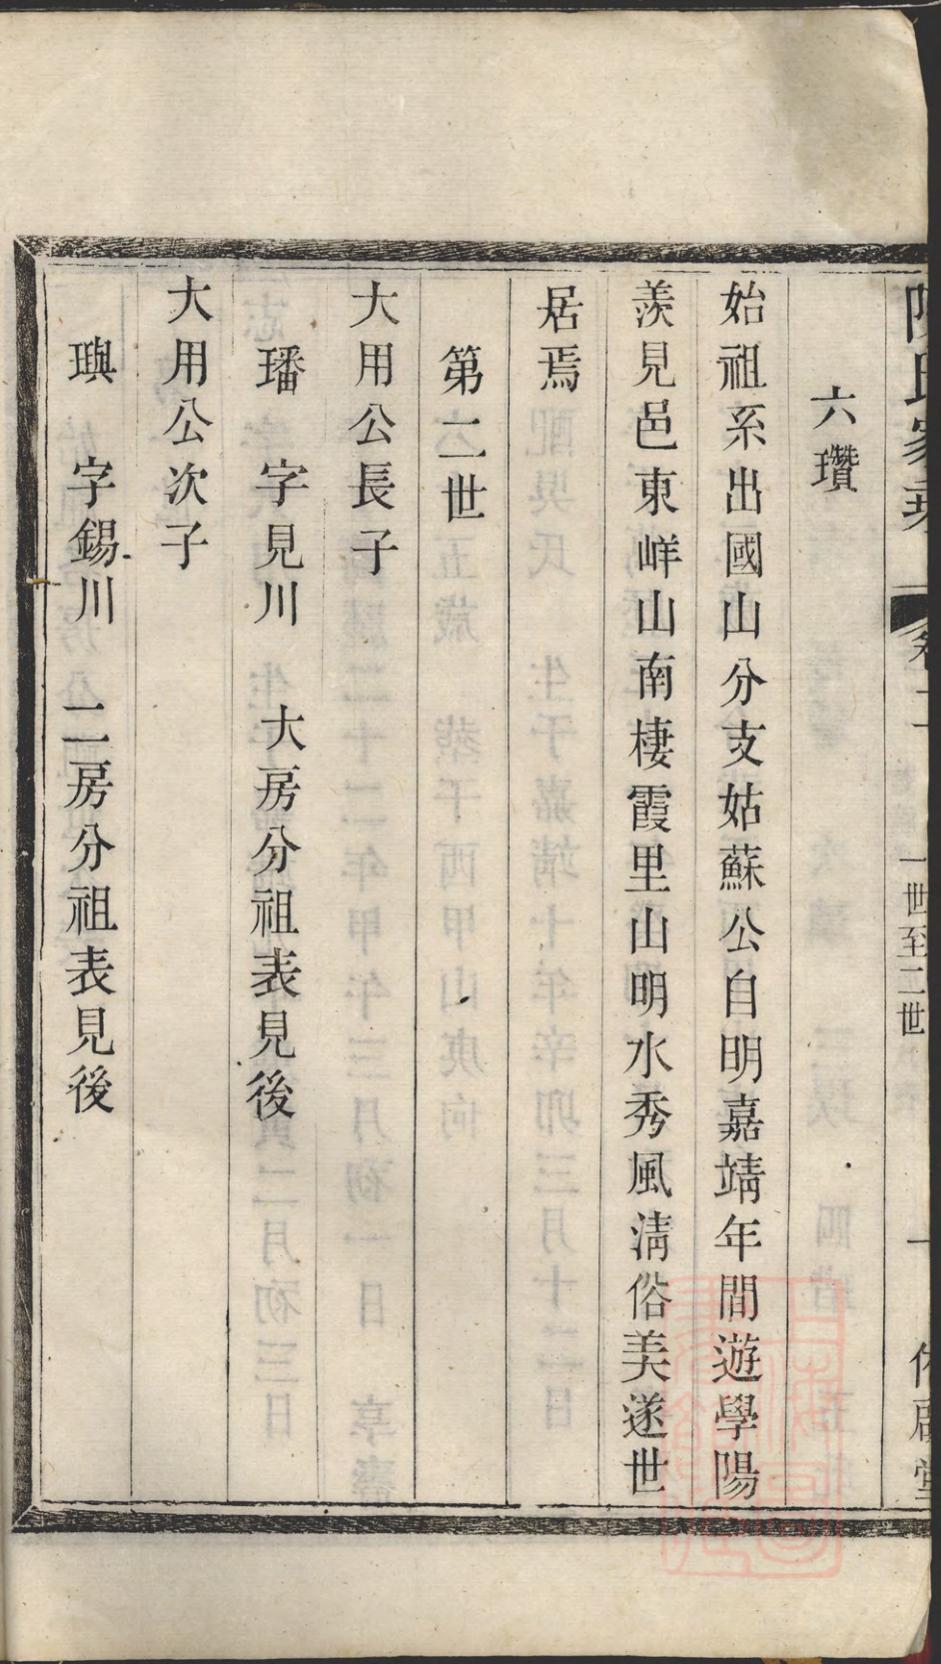 氏家乘 卷二 一世至二世 一 啟堂
六瓚
始祖系出國山分支姑蘇公自明嘉靖年間遊學陽
羨見邑東㟄山南棲霞里山明水秀風清俗美遂世
居焉
第二世
大用公長子
璠 字見川 大房分祖表見後
大用公次子
璵 字錫川 二房分祖表見後